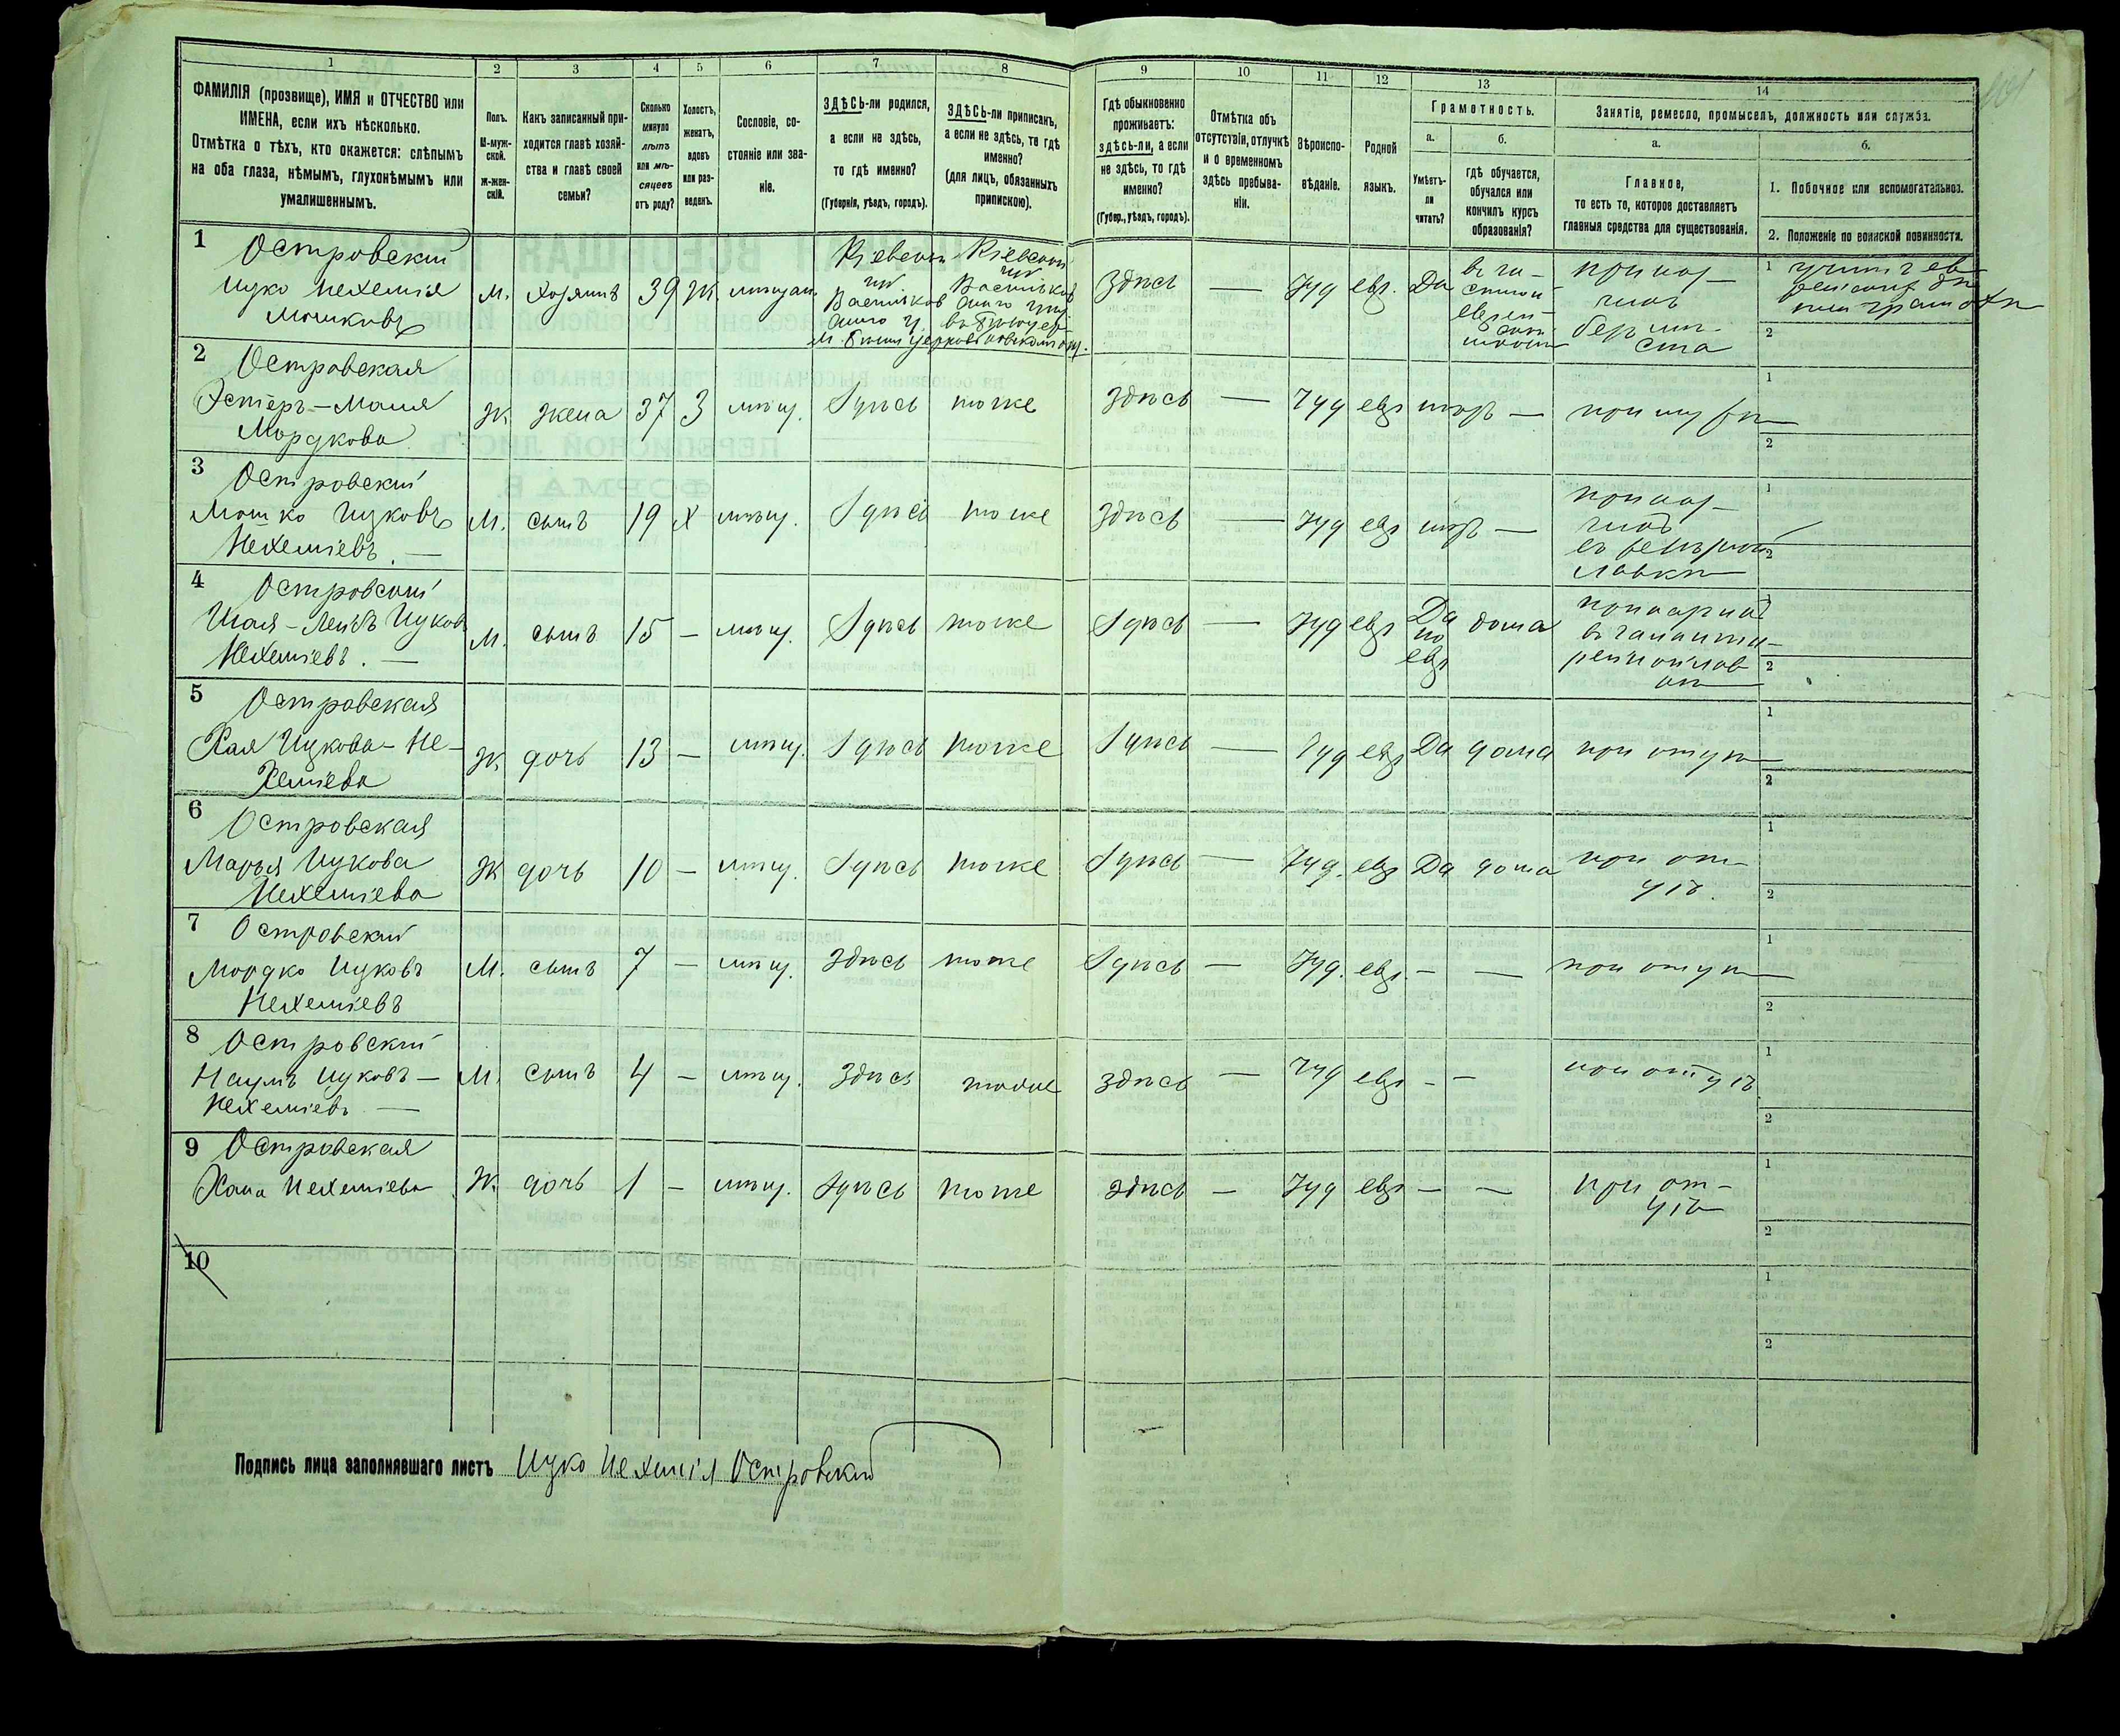 1 2 3 4 5 6 7 8 9 10 11 12 13 14
ФАМИЛІЯ (прозвище), ИМЯ и ОТЧЕСТВО или
ИМЕНА, если ихъ нѣсколько.
Отмѣтка о тѣхъ, кто окажется: слѣпымъ
на оба глаза, нѣмымъ, глухонѣмымъ или
умалишеннымъ.
Полъ.
М-муж-
ской.
ж-жен-
скій.
Какъ записанный при-
ходится главѣ хозяй-
ства и главѣ своей
семьи?
Сколько
минуло
лѣтъ
или мѣ-
сяцевъ
отъ роду?
Холостъ,
женатъ,
вдовъ
или раз-
веденъ.
Сословіе, со-
стояніе или зва-
ніе.
ЗДѢСЬ-ли родился,
а если не здѣсь,
то гдѣ именно?
(Губернія, уѣздъ, городъ).
ЗДѢСЬ-ли приписанъ,
а если не здѣсь, то гдѣ
именно?
(для лицъ, обязанныхъ
припискою).
Гдѣ обыкновенно
проживаетъ:
здѣсь-ли, а если
не здѣсь, то гдѣ
именно?
(Губер., уѣздъ, городъ).
Отмѣтка объ
отсутствіи, отлучкѣ
и о временномъ
здѣсь пребыва-
ніи.
Вѣроиспо-
вѣданіе.
Родной
языкъ.
Грамотность.
а. б.
Умѣетъ-
ли
читать?
гдѣ обучается,
обучался или
кончилъ курсъ
образованія?
Занятіе, ремесло, промыселъ, должность или служба.
а. б.
Главное,
то есть то, которое доставляетъ
главныя средства для существованія.
1. Побочное или вспомогательное.
2. Положеніе по воинской повинности.
1 Островский
Ицко Нехемія
Мошковъ
м. хозяинъ 39 Ж. мѣщан.
Кіевской
губ
Васильков
скаго у.
м. Бѣлая Церковь
Кіевской
губ
Васильков
скаго у
Здѣсь — Іуд евр. Да
2 Островская
Эстеръ-Маня
Мордкова
Ж жена 37 З мѣщ. Здѣсь тоже Здѣсь — Іуд евр — при мужѣ
3 Островский
Мошко Ицковъ
Нехеміевъ. —
М. сынъ 19 Х мѣщ. Здѣсь тоже Здѣсь — Іуд евр —
лавкѣ
4 Островский
Ицков
Нехеміевъ. —
М. сынъ 15 — мѣщ. Здѣсь тоже Здѣсь — Іуд евр Да
по
евр
дома
5 Островская
Хая Ицкова-Не-
хеміева
Ж. дочь 13 — мѣщ. Здѣсь тоже Здѣсь — Іуд евр Да дома при отцѣ
6 Островская
Марья Ицкова
Нехеміева
Ж дочь 10 — мѣщ. Здѣсь тоже Здѣсь — Іуд. евр Да дома при от-
цѣ.
7 Островский
Мордко Ицковъ
Нехеміевъ
М. сынъ 7 — мѣщ. Здѣсь тоже Здѣсь — Іуд. евр. — — при отцѣ
8 Островский
Наумъ Ицковъ —
Нехеміевъ —
М. сынъ 4 — мѣщ. Здѣсь тоже Здѣсь — Іуд евр — — при отцѣ
9 Островская
Хана Нехеміева
Ж. дочь 1 — мѣщ. Здѣсь тоже Здѣсь — Іуд евр — — при от-
цѣ
10
Подпись лица заполнявшаго листъ Ицко Нехемія Островский